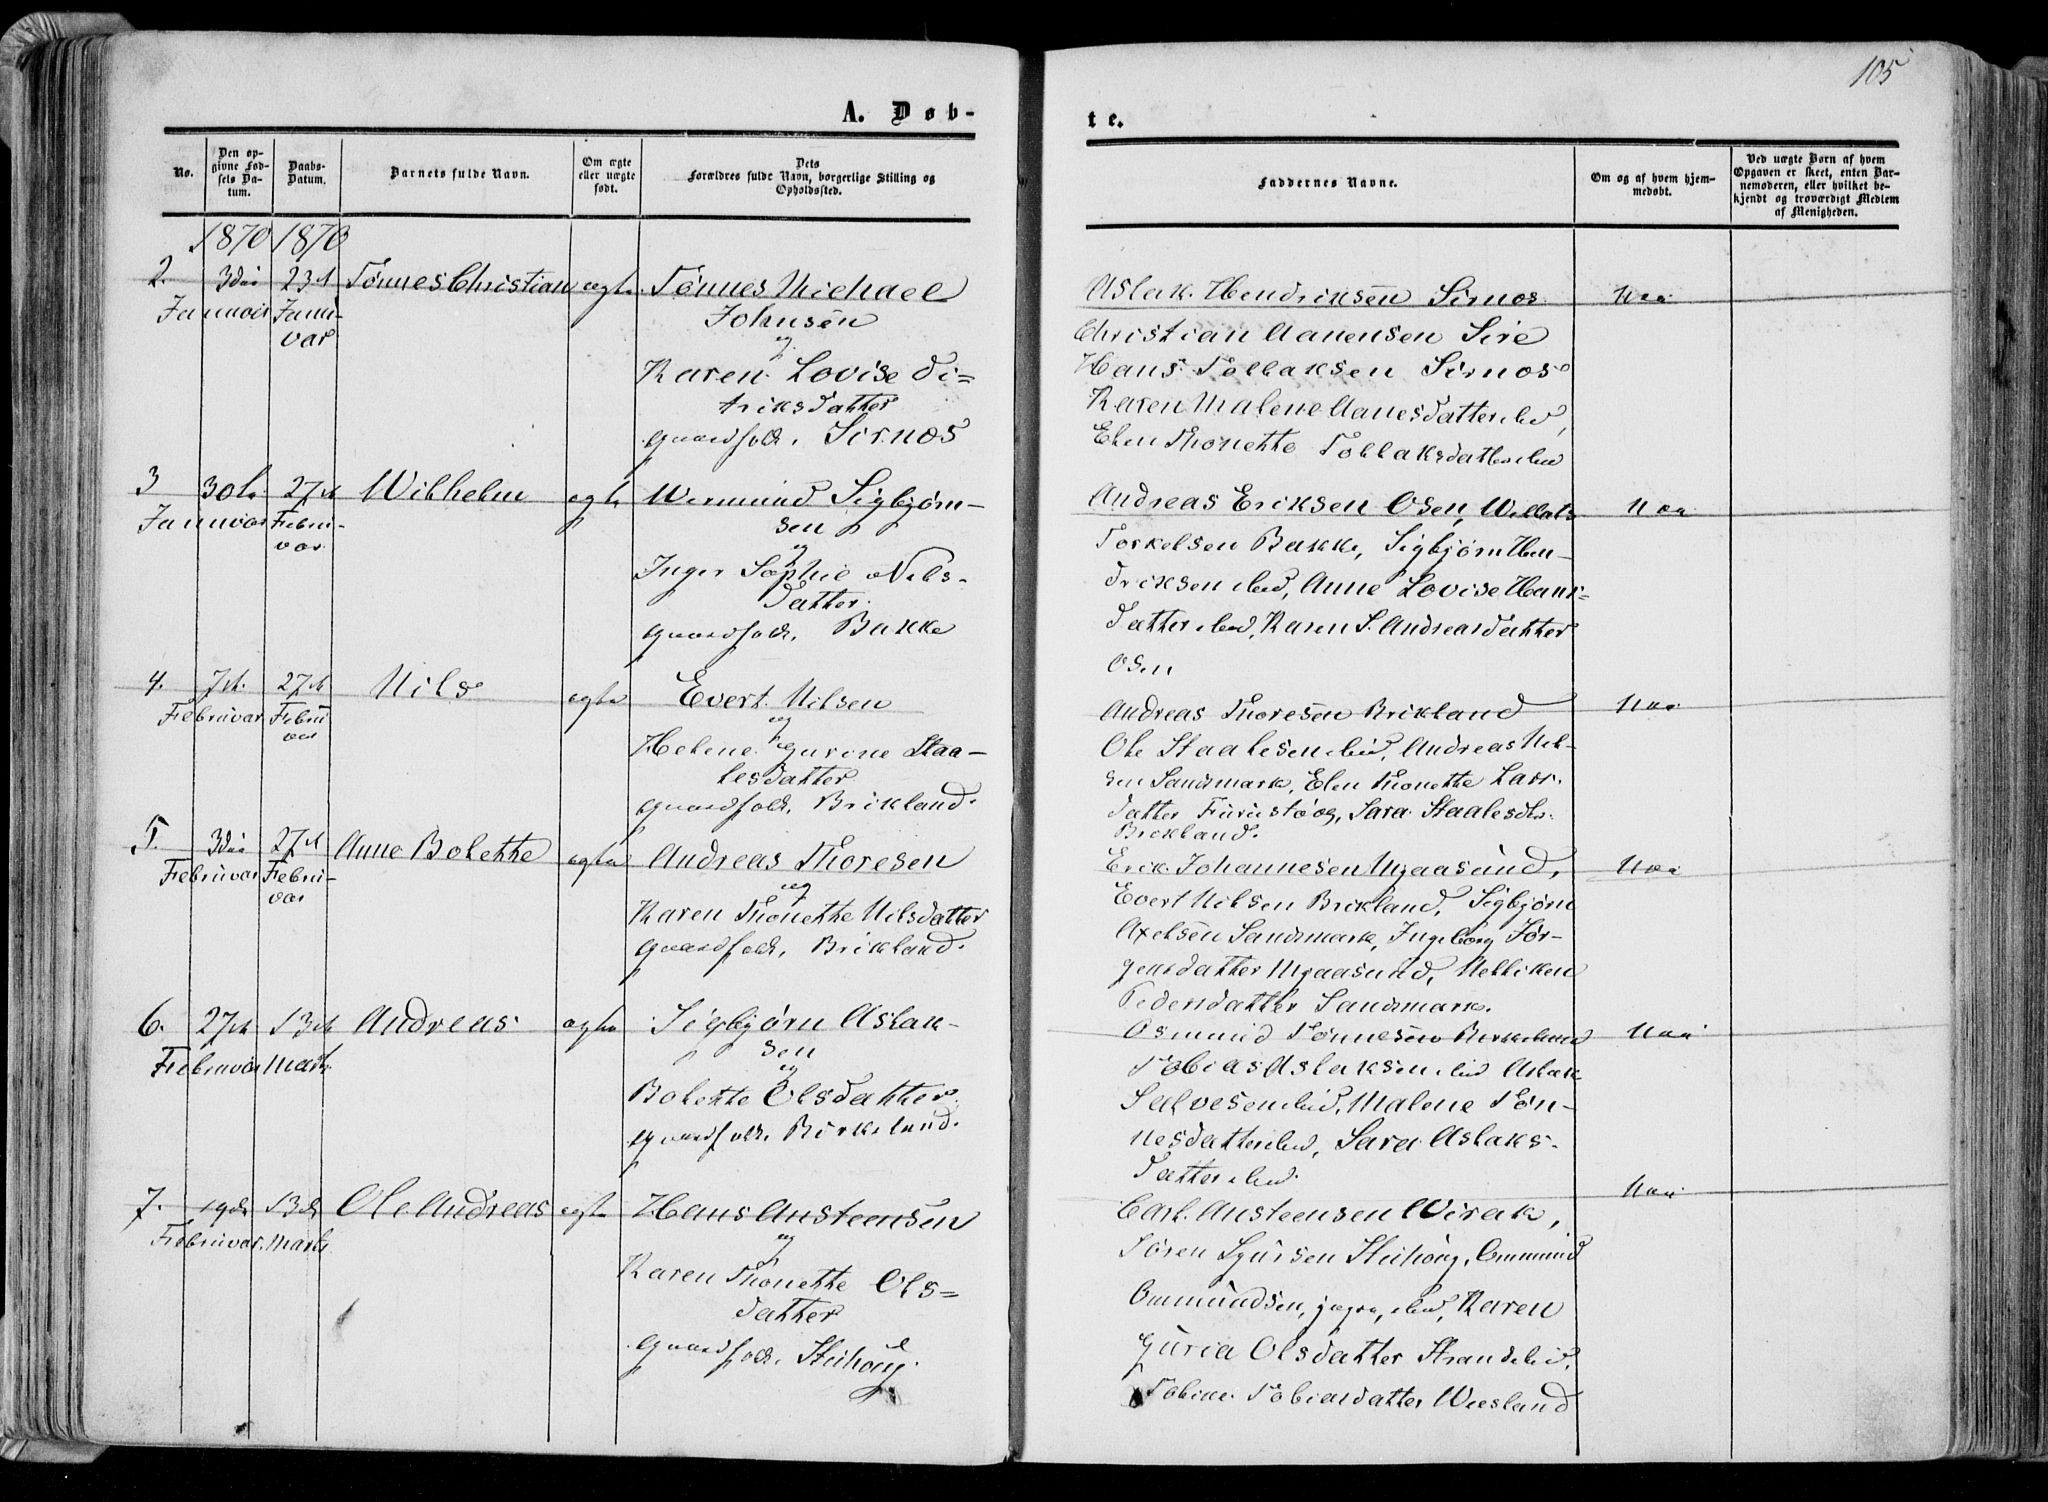 105
A. Døb-
te.
No.
Den op-
givne Fød-
sels Da-
tum.
Daabs-
Datum.
Barnets fulde Navn.
Om ægte
eller uægte
født.
Dets
Forældres fulde Navn, borgerlige Stilling og
Opholdssted.
Faddernes Navne.
Om og af hvem hjem-
medøbt.
Ved uægte Børn af hvem
Opgaven er skeet, enten Bar-
nemoderen, eller hvilket be-
kjendt og troværdigt Medlem
af Menigheden.
1870 1870
2. 3die 23d Tönnes Christian ægte Tönnes Michael
Januar Janu-
var
Johnsen
og
Karen Lovise Di-
driksdatter
gaardfolk, Sirnos
Aslak Hendriksen Sirnos Nei
Christian Aanensen Sire
Hans Tollaksen Sirnos
Karen Malene Aanesdatter ibid,
Elen Thonette Tollaksdatter ibid
3 30te 27de Wilhelm ægte Wermund Sigbjørn-
Januvar Febru-
var
sen
og
Inger Sophie Nils-
datter
gaardfolk, Bakke
Andreas Eriksen Osen, Nei
Torkelsen Bakke, Sigbjørn Hen-
driksen ibid, Anne Lovise Hans-
datter ibid, Karen S. Andreasdatter
Osen
4. 7de 27de Nils ægte Evert Nilsen
Februvar Febru
var
og
Helene Gurine Staa-
lesdatter
gaardfolk, Brikland.
Andreas Thoresen Brikland Nei
Ole Staalesen ibid, Andreas Nil-
sen Sandsmark, Elen Thonette Lars-
datter Furustöög, Sara Staalesdtr.
Brikland.
5. 3die 27de Anne Bolette ægte Andreas Thoresen
Februvar Febru-
var
og
Karen Thonette Nilsdatter
gaardfolk, Brikland.
Erik Johannesen Mgaasund, Nei
Evert Nilsen Brikland, Sigbjørn
Axelsen Sandsmark, Ingeborg Jör-
gensdatter Mgaasund, Nelliken
Pedersdatter Sandsmark.
6. 27de 13de Andreas ægte Sigbjørn Aslak-
Februvar Marts
sen
og
Bolette Olsdatter
gaardfolk, Birkeland.
Osmund Tönnesen Birkeland Nei
Tobias Aslaksen ibid Aslak
Salvesen ibid, Malene Tøn-
nesdatter ibid, Sara Aslaks-
datter ibid.
7. 19de 13de Ole Andreas ægte Hans Austeensen
Februvar. Marts
og
Karen Thonette Ols-
datter
gaardfolk,
Carl Austeensen Wirak, Nei
Sören Sjursen Ommund
Ommundsen, ibid, Karen
Guria Olsdatter Strandelid,
Tobine Tobiasdatter Wiesland